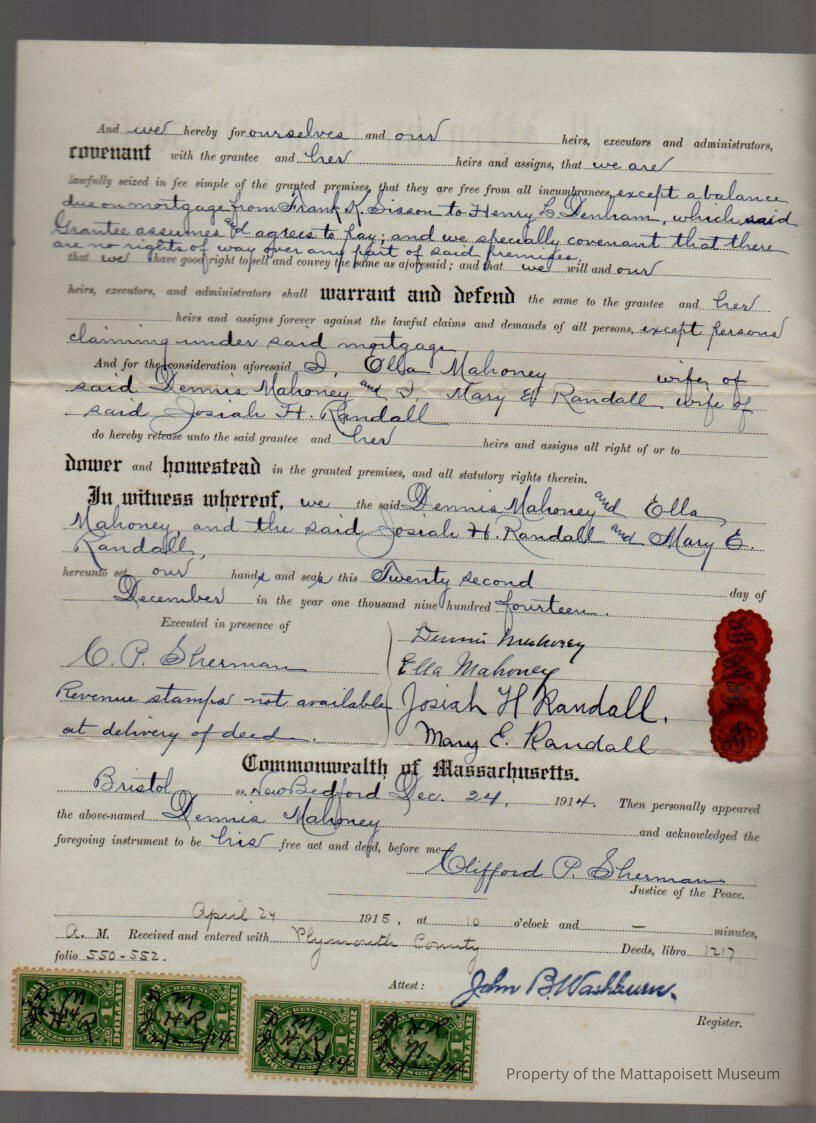 And we hereby for ourselves and our heirs, executors and administrators,
covenant with the grantee and her heirs and assigns, that we are
lawfully seized in fee simple of the granted premises, that they are free from all incumbrances, except a balance
due on mortgage from Frank K. Sisson to Henry L. Denham, which said
Grantee assumes and agrees to pay; and we specially covenant that there
are no rights of way over any part of said premises,
that we have good right to sell and convey the same as aforesaid; and that we will and our
heirs, executors, and administrators shall warrant and defend the same to the grantee and her
heirs and assigns forever against the lawful claims and demands of all persons, except persons
claiming under said mortgage
And for the consideration aforesaid I, Ella Mahoney wife of
said Dennis Mahoney and I, Mary E. Randall wife of
said Josiah H. Randall
do hereby release unto the said grantee and her heirs and assigns all right of or to
dower and homestead in the granted premises, and all statutory rights therein.
In witness whereof, we the said Dennis Mahoney and Ella
Mahoney, and the said Josiah H. Randall and Mary E.
Randall,
hereunto set our hands and seals this Twenty second day of
December in the year one thousand nine hundred fourteen.
Executed in presence of
Dennis Mahoney
C. P. Sherman
Ella Mahoney
Revenue stamps not available
Josiah H Randall.
at delivery of deed.
Mary E. Randall
Commonwealth of Massachusetts.
Bristol ss. New Bedford Dec. 24, 1914. Then personally appeared
the above-named Dennis Mahoney and acknowledged the
foregoing instrument to be his free act and deed, before me
Clifford P. Sherman
Justice of the Peace.
April 24 1915, at 10 o'clock and — minutes,
A. M. Received and entered with Plymouth County Deeds, libro 1217
folio 550-552.
Attest: John B. Washburn.
Register.
DOLLAR
Property of the Mattapoisett Museum